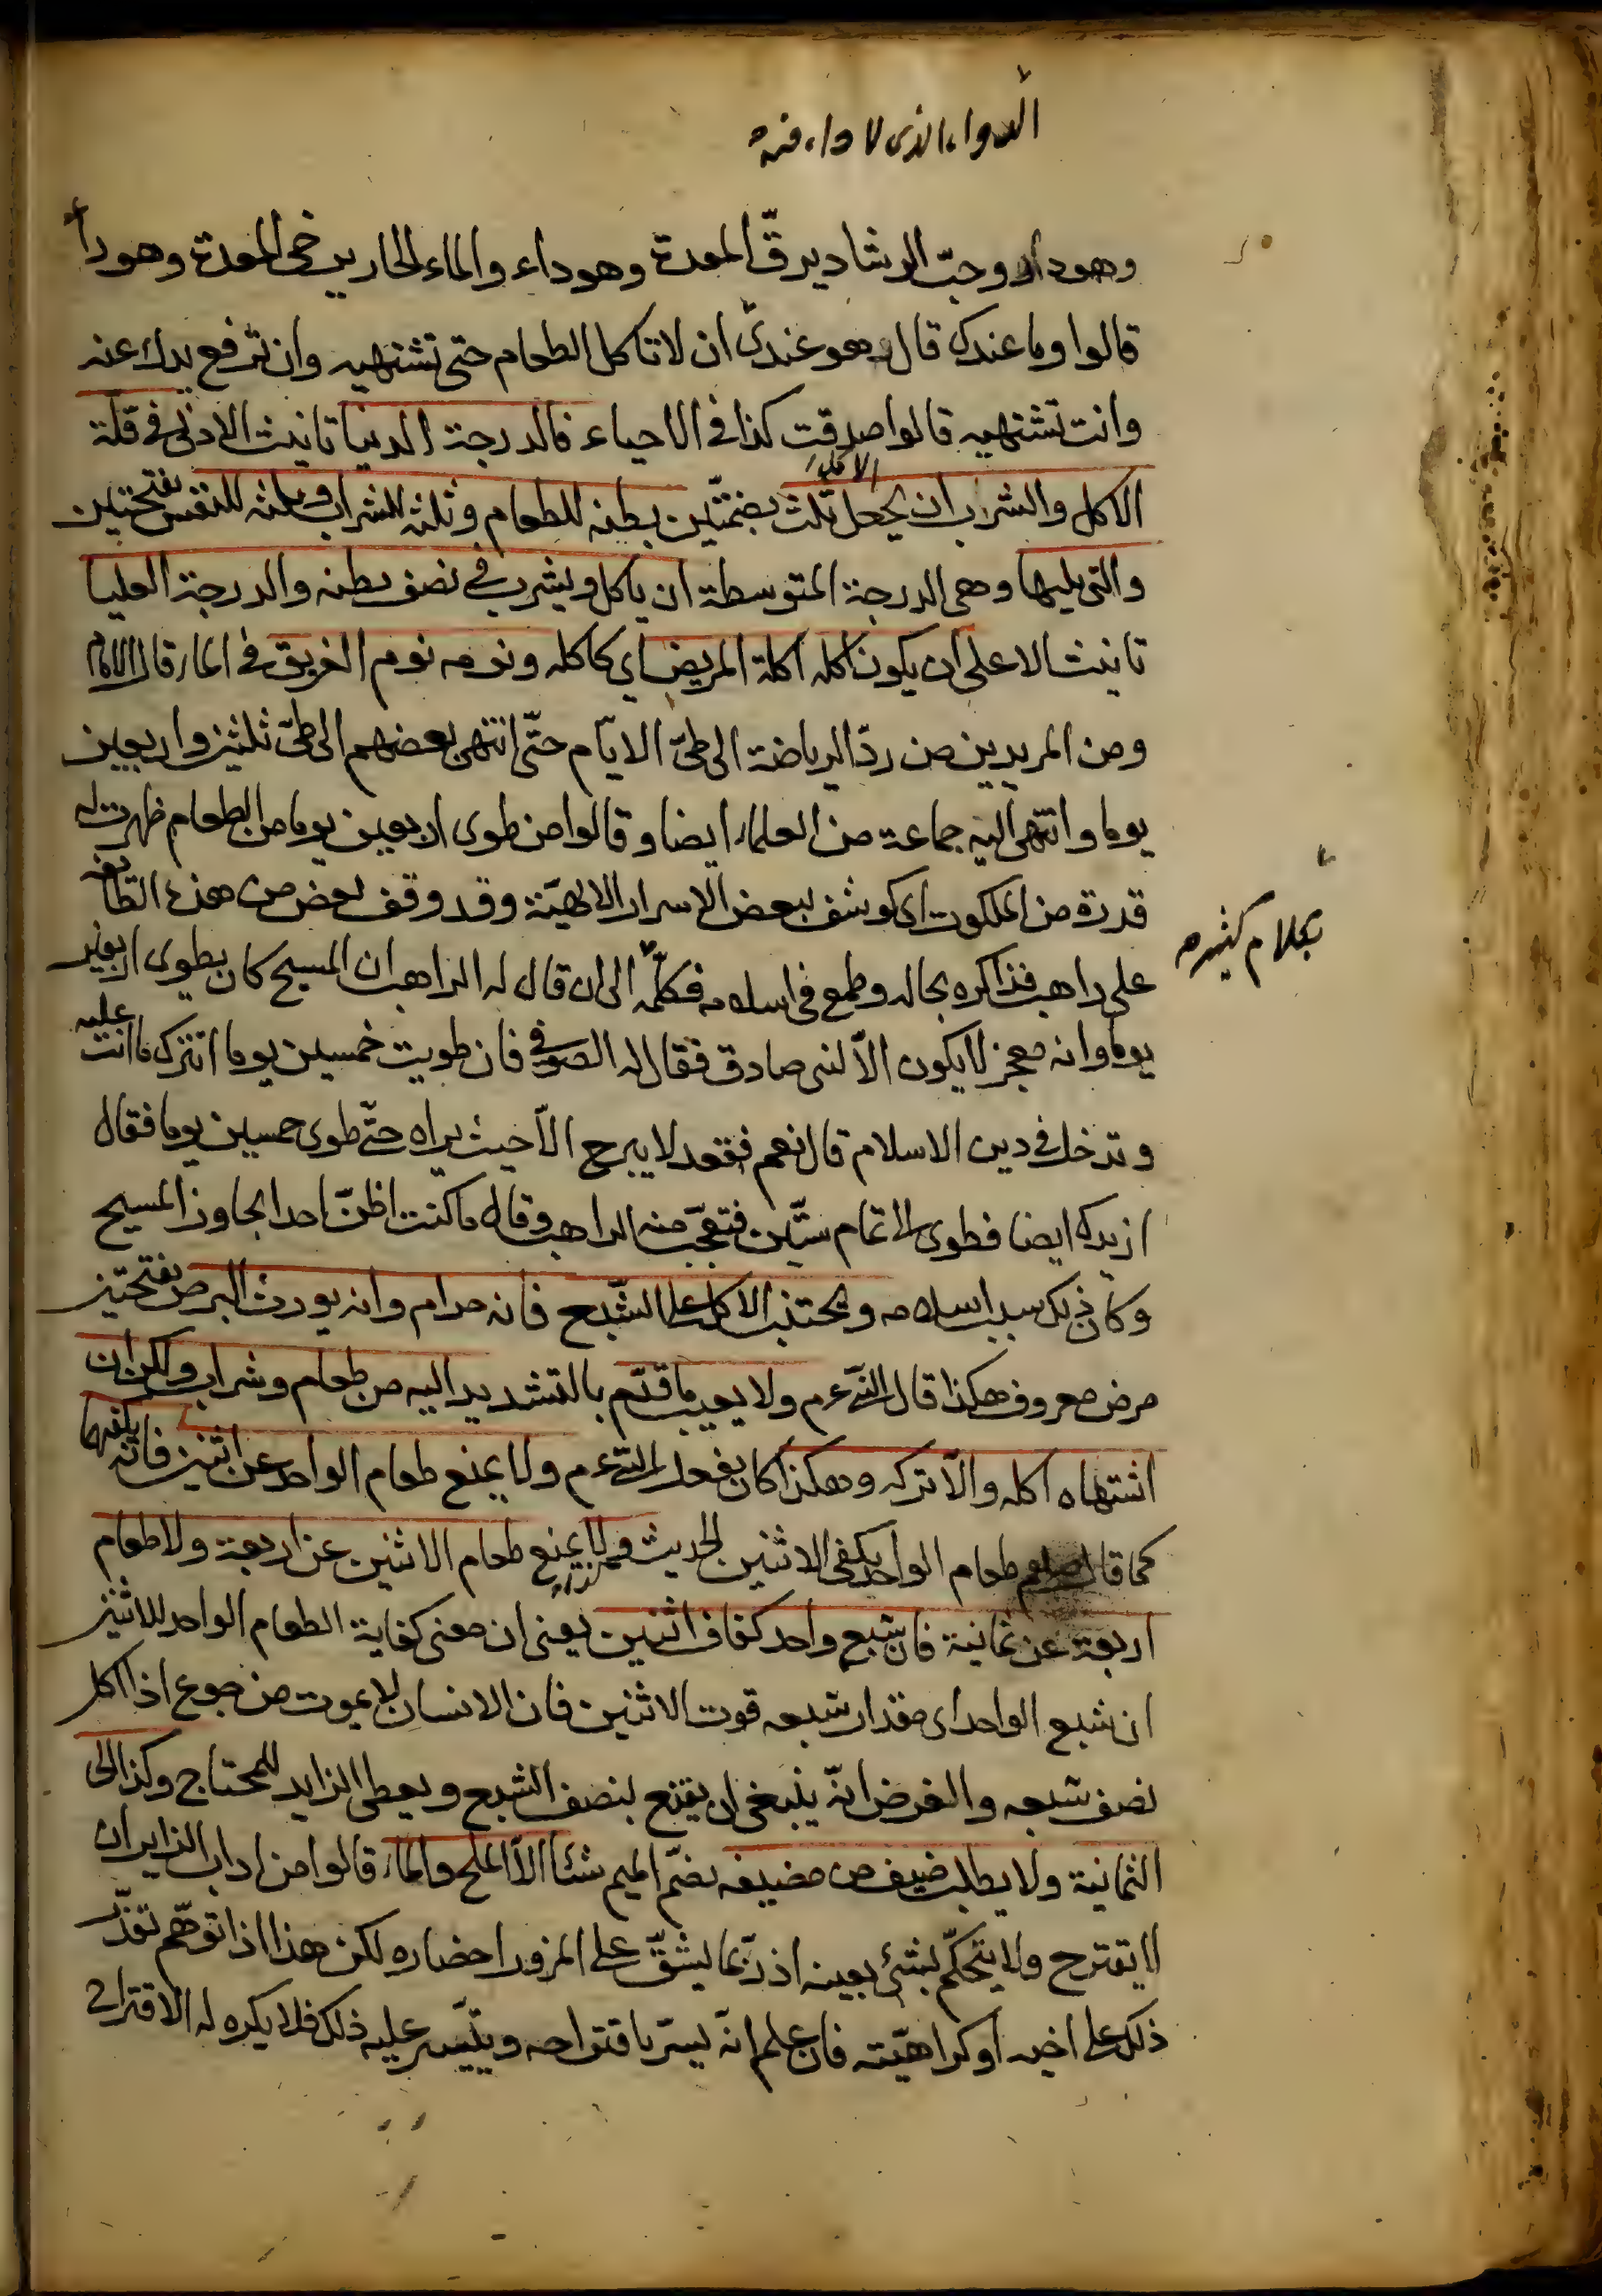 الدواء الذى لا داء فيه
وهو داء وحبّ الرشاد يرقّ المعدة وهو داء والماء الحار يرخى المعدة وهو داء
قالوا وما عندك قال وهو عندى ان لا تاكل الطعام حتى تشتهيه وان ترفع يدك عنه
وانت تشتهيه قالوا صدقت كذا فى الاحياء فالدرجة الدنيا تانيث الادنى فى قلة
الاكل والشراب ان يجعل ثلث بضمتين بطنه للطعام وثلثه للشراب وثلثه للنفس بفتحتين
والتى يليها وهى الدرجة المتوسطة ان ياكل ويشرب فى نصف بطنه والدرجة العليا
تانيث الاعلى ان يكون اكله اكلة المريض اى كاكله ونومه نوم الغريق فى الماء قال الامام
ومن المريدين من ردّ الرياضة الى طىّ الايّام حتّى انتهى بعضهم الى طىّ ثلثين واربعين
يوما وانتهى اليه جماعة من العلماء ايضا وقالوا من طوى اربعين يوما من الطعام ظهرت له
قدرة من الملكوت اى كوشف ببعض الاسرار الالهيّة وقد وقف بعض من هذه الطائفة
على راهب فذاكره بحاله وطمع فى اسلامه فكلّمه الى ان قال له الراهب ان المسيح كان يطوى اربعين
بكلام كثيره
يوما وانه معجز لا يكون الّا لنبى صادق فقال له الصوفى فان طويت خمسين يوما اتترك ما انت عليه
وتدخل فى دين الاسلام قال نعم فقعد لا يبرح الّا حيث يراه حتّى طوى خمسين يوما فقال
ازيدك ايضا فطوى الى تمام ستّين فتعجّب منه الراهب وقال ما كنت اظنّ احدا يجاوز المسيح
وكان ذلك سبب اسلامه ويجتنب الاكل على الشّبع فانه حرام وانه يورث البرص بفتحتين
مرض معروف هكذا قال النّبى عم ولا يعيب ما قدّم بالتشديد اليه من طعام وشراب ولكن ان
اشتهاه اكله والّا تركه وهكذا كان يفعل النّبى عم ولا يمنع طعام الواحد عن اثنين فانّه يكفيهما
كما قال صلعم طعام الواحد يكفى الاثنين الحديث ولا يمنع طعام الاثنين عن اربعة ولا طعام
اربعة عن ثمانية فان شبع واحد كفاف اثنين يعنى ان معنى كفاية الطعام الواحد للاثنين
ان شبع الواحد اى مقدار شبعه قوت الاثنين فان الانسان لا يموت من جوع اذا اكل
نصف شبعه والغرض انّه ينبغى ان يقنع بنصف الشبع ويعطى الزايد للمحتاج وكذا الى
الثمانية ولا يطلب ضيف من مضيفه بضمّ الميم شئا الّا الملح والماء قالوا من اداب الزاير ان
لا يقترح ولا يتحكّم بشئ بعينه اذ ربّما يشقّ على المزور احضاره لكن هذا اذا توهّم تعذّر
ذلك على اخيه او كراهيّته فان علم انّه يسرّ باقتراحه ويتيّسر عليه ذلك فلا يكره له الاقتراح